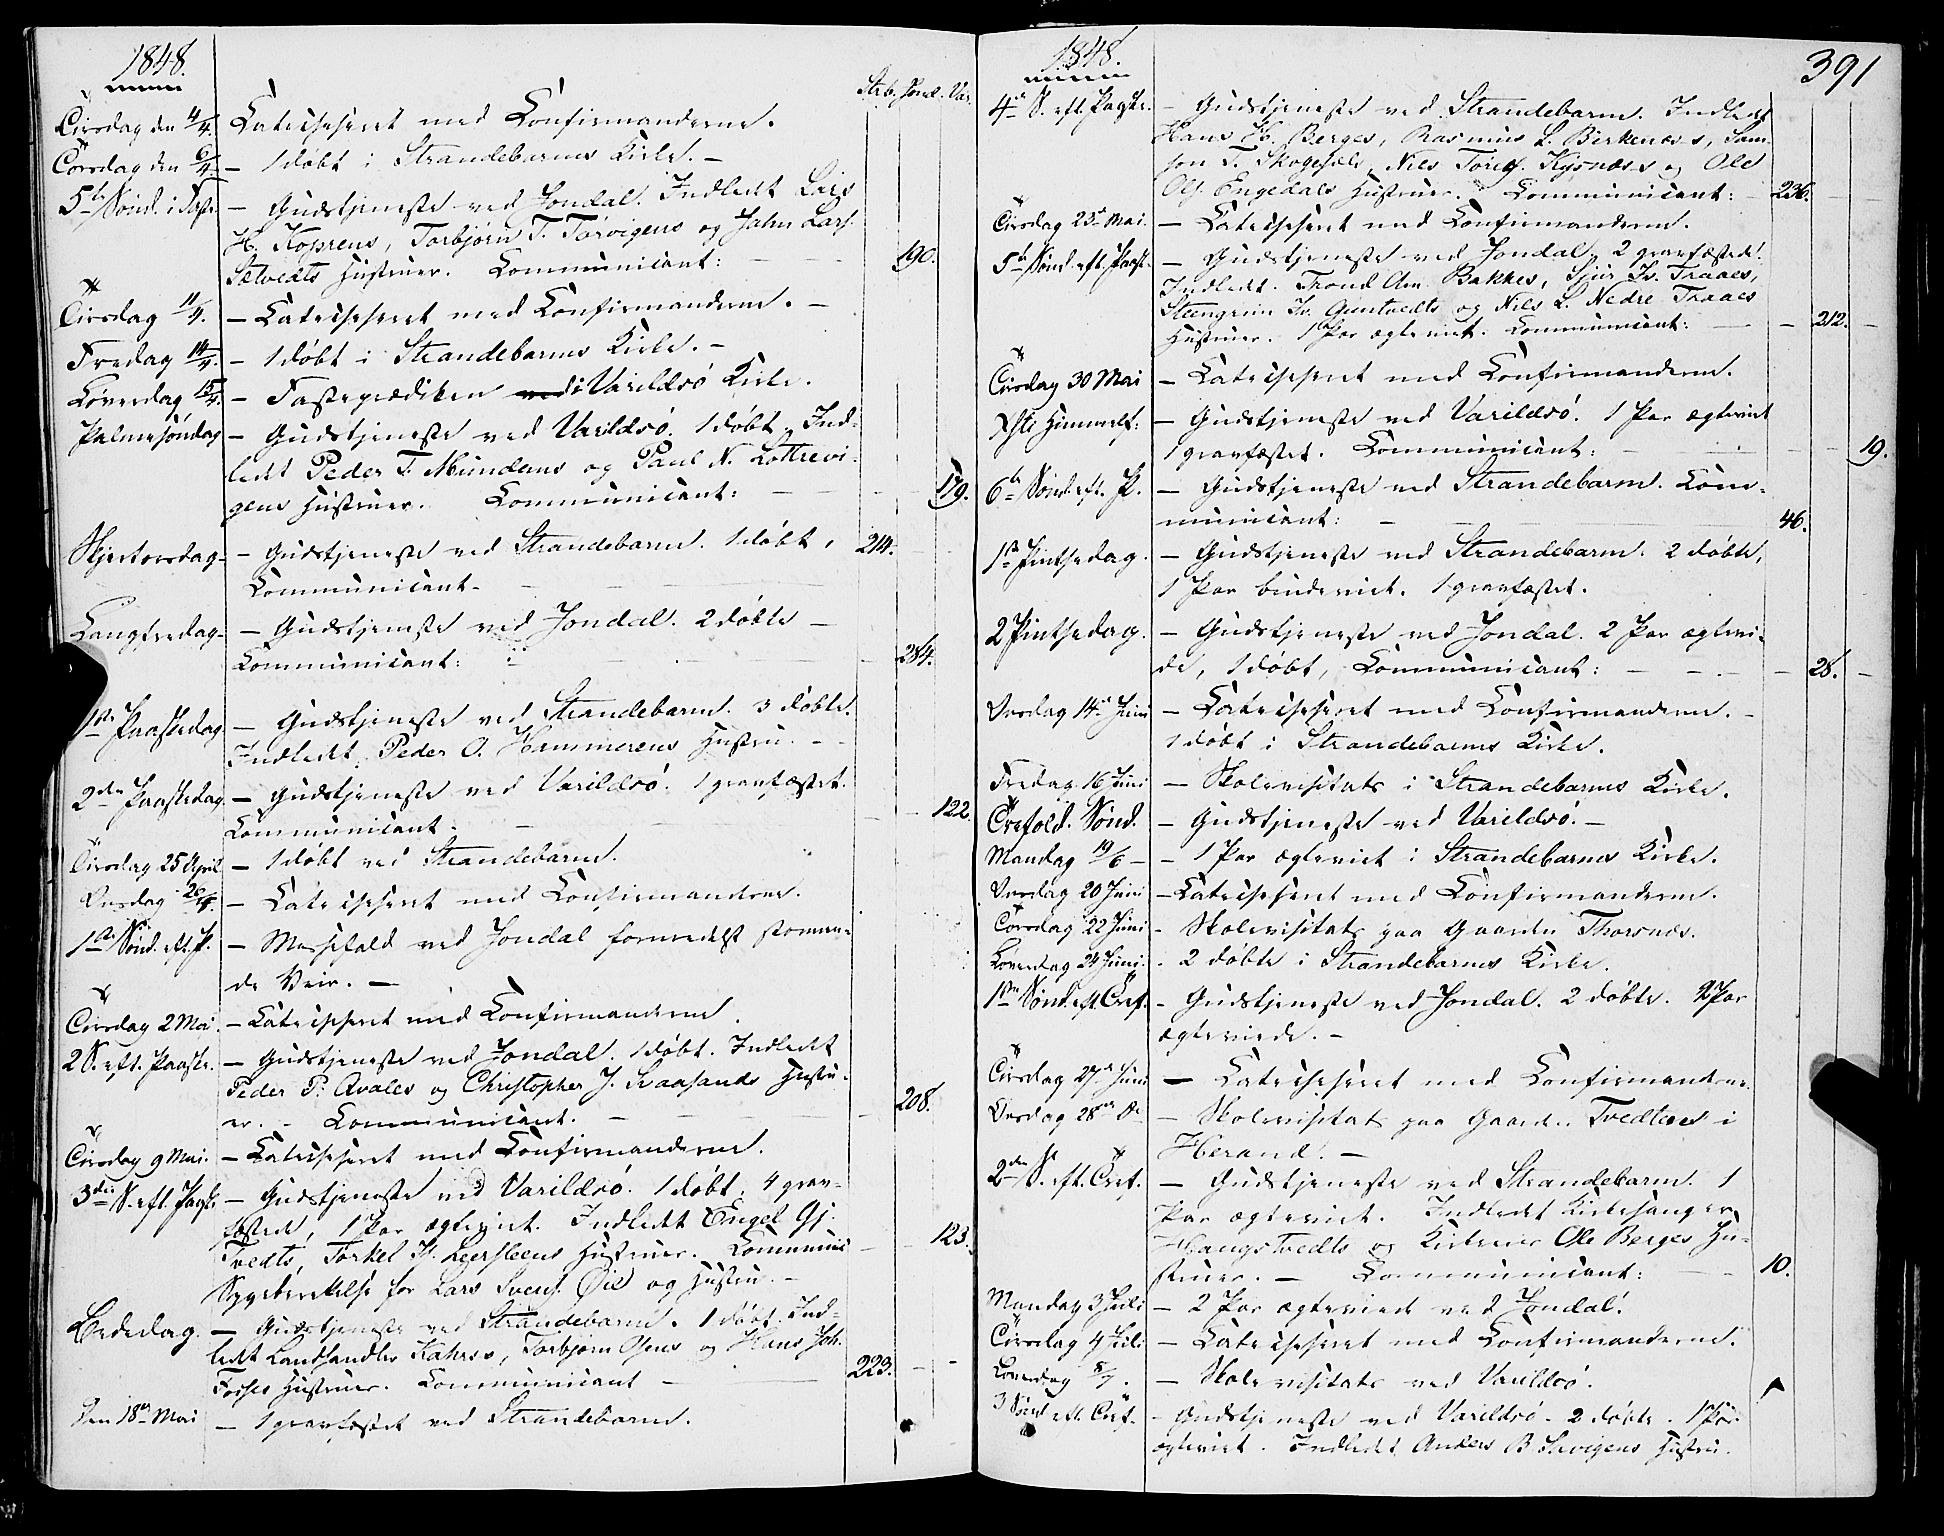 1848.
Strb. Jond. Var.
Tirsdag den 4/4. Catechiseret med Confirmanderne.
Torsdag den 6/4. – 1 døbt i Strandebarms Kirke. –
5te Sønd. i Faste – Gudstjeneste ved Jondal. Indledt Lars
H. Koprens, Torbjørn T. Torvigens og John Lars.
Sætvedts Hustruer. Communicant: – – 190.
Tirsdag 11/4. – Catechiseret med Confirmanderne. –
Fredag 14/4. – 1 døbt i Strandebarms Kirke. –
Løverdag 15/4. – Fasteprædiken i Varildsø Kirke.
Palmesøndag – Gudstjeneste ved Varildsø. 1 døbt. Ind-
ledt Peder T. Mundems og Paul N. Lottrevi-
gens Hustruer. Communicant: – – 179.
Skjertorsdag – Gudstjeneste ved Strandebarm. 1 døbt, 214.
Communicant. –
Langfredag – Gudstjeneste ved Jondal. 2 døbte –
Communicant: – – 284.
1ste Paaskedag – Gudstjeneste ved Strandebarm. 3 døbte.
Indledt Peder O. Hammerens Hustru. –
2den Paaskedag – Gudstjeneste ved Varildsø. 1 gravfæstet.
Communicant. – – 122.
Tirsdag 25 April – 1 døbt ved Strandebarm.
Onsdag 26/4. – Catechiseret med Confirmanderne.
1ste Sønd. eft. P. – Messefald ved Jondal formedelst stormen-
de Veir. –
Tirsdag 2 Mai. – Catechiseret med Confirmanderne.
2 S. eft. Paaske. – Gudstjeneste ved Jondal. 1 døbt. Indledt
Peder P. Qvales og Christopher J. Skaasands Hustru-
er. – Communicant. – 208.
Tirsdag 9 Mai. – Catechiseret med Confirmanderne.
3die S. eft. Paaske – Gudstjeneste ved Varildsø. 1 døbt. 4 grav-
fæstede, 1 Par ægteviet. Indledt Engel Gj.
Tvedts, Torkel H. Leersteens Hustruer. Communic – 123.
Sygeberettelse for Lars Svens. Øie og Hustru. –
Bededag. – Gudstjeneste ved Strandebarm. 1 døbt. Ind-
ledt Landhandler Kahrss, Torbjørn Osens og Hans Joh.
Fosses Hustruer. Communicant – 223. – –
Den 18de Mai – 1 gravfæstet ved Strandebarm.
1848.
391
4de S. eft. Paaske. – Gudstjeneste ved Strandebarm. Indledt
Hans H. Berges, Rasmus L. Birkenæss, Sam-
son T. Skogesæls, Nils Torgs. Kysnæss og Ole
Ols. Engedals Hustruer. Communicant: – 236.
Tirsdag 23de Mai. – Catechiseret med Confirmanderne.
5te Sønd. eft. Paask. – Gudstjeneste ved Jondal. 2 gravfæstede.
Indledt. Trond Am. Bakkes, Sjur Iv. Traaes,
Steengrim Iv. Guntvedts og Nils L. Nedre Traaes
Hustruer. 1 Par ægteviet. Communicant: – – 212. –
Tirsdag 30 Mai – Catechiseret med Confirmanderne.
Xsti Himmelf: – Gudstjeneste ved Varildsø. 1 Par ægteviet
1 gravfæstet. Communicant: – – 19.
6te Sønd. eft. P. – Gudstjeneste ved Strandebarm. Com-
municant: – 46.
1ste Pintsedag. – Gudstjeneste ved Strandebarm. 2 døbte,
1 Par bindeviet. 1 gravfæstet.
2 Pintsedag. – Gudstjeneste ved Jondal. 2 Par ægtevi-
de, 1 døbt, Communicant: – – – 28. –
Onsdag 14de Juni – Catechiseret med Confirmanderne. –
1 døbt i Strandebarms Kirke.
Fredag 16 Juni – Skolevisitats i Strandebarms Kirke.
Trefold. Sønd. – Gudstjeneste ved Varildsø. –
Mandag 19/6 – – 1 Par ægteviet i Strandebarms Kirke.
Onsdag 20 Juni – Catechiseret med Confirmanderne.
Torsdag 22 Juni – Skolevisitats paa Gaarden Thorsnæs.
Løverdag 24 Juni. – 2 døbte i Strandebarms Kirke.
1ste Sønd. eft. Tref. – Gudstjeneste ved Jondal. 2 døbte. 2 Par
ægteviede. –
Tirsdag 27de Juni – Catechiseret med Confirmanderne.
Onsdag 28de Do – Skolevisitats paa Gaarden Tvedtnes i
Herand. –
2den S. eft. Tref. – Gudstjeneste ved Strandebarm. 1
Par ægteviet. Indledt Kirkesanger
Haugstvedts og Ole Berges Hu-
struer. – Communicant: – 10.
Mandag 3 Juli – 2 Par ægteviede ved Jondal.
Tirsdag 4 Juli – Catechiseret med Confirmanderne.
Løverdag 8/7. – Skolevisitats ved Varildsø.
3 Sønd eft. Tref. – Gudstjeneste ved Varildsø – 2 døbte. 1 Par
ægteviet. Indledt Anders B. Sævigens Hustru.